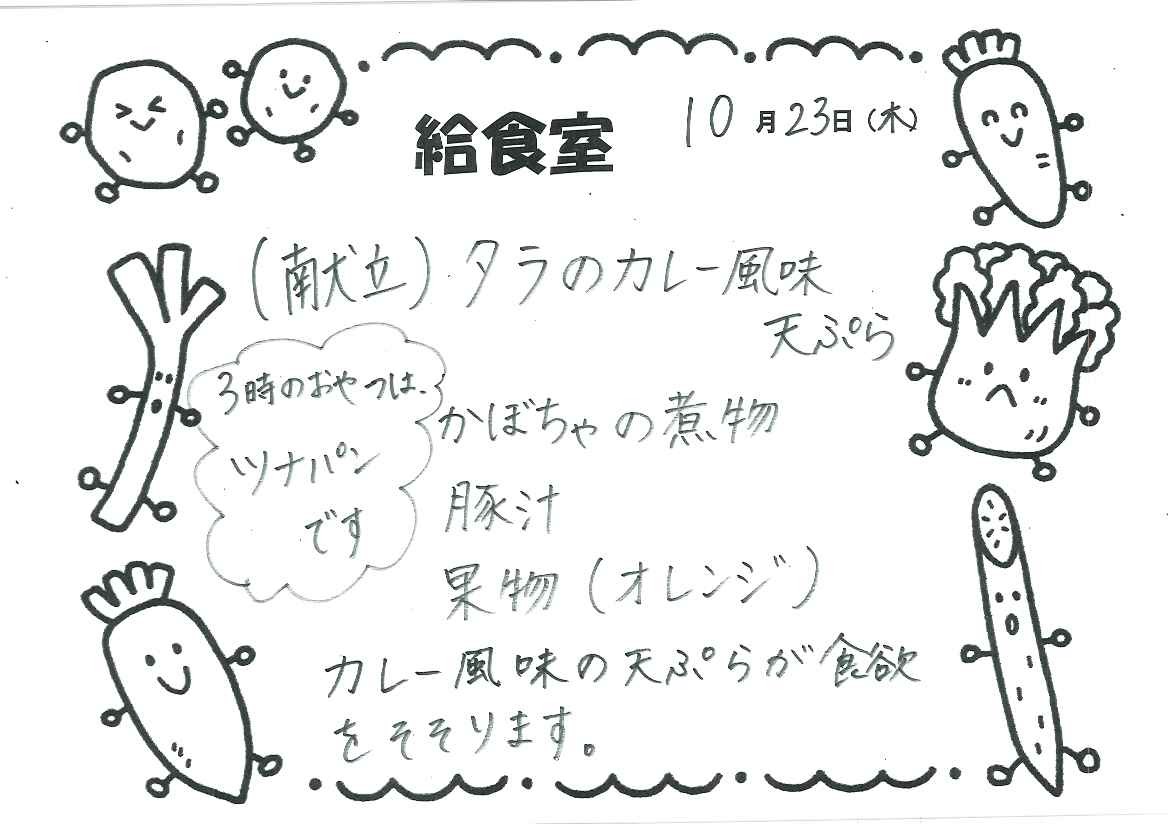 給食室
10月23日(木)
(献立)タラのカレー風味
天ぷら
3時のおやつは、
ツナパン
です
かぼちゃの煮物
豚汁
果物(オレンジ)
カレー風味の天ぷらが食欲
をそそります。